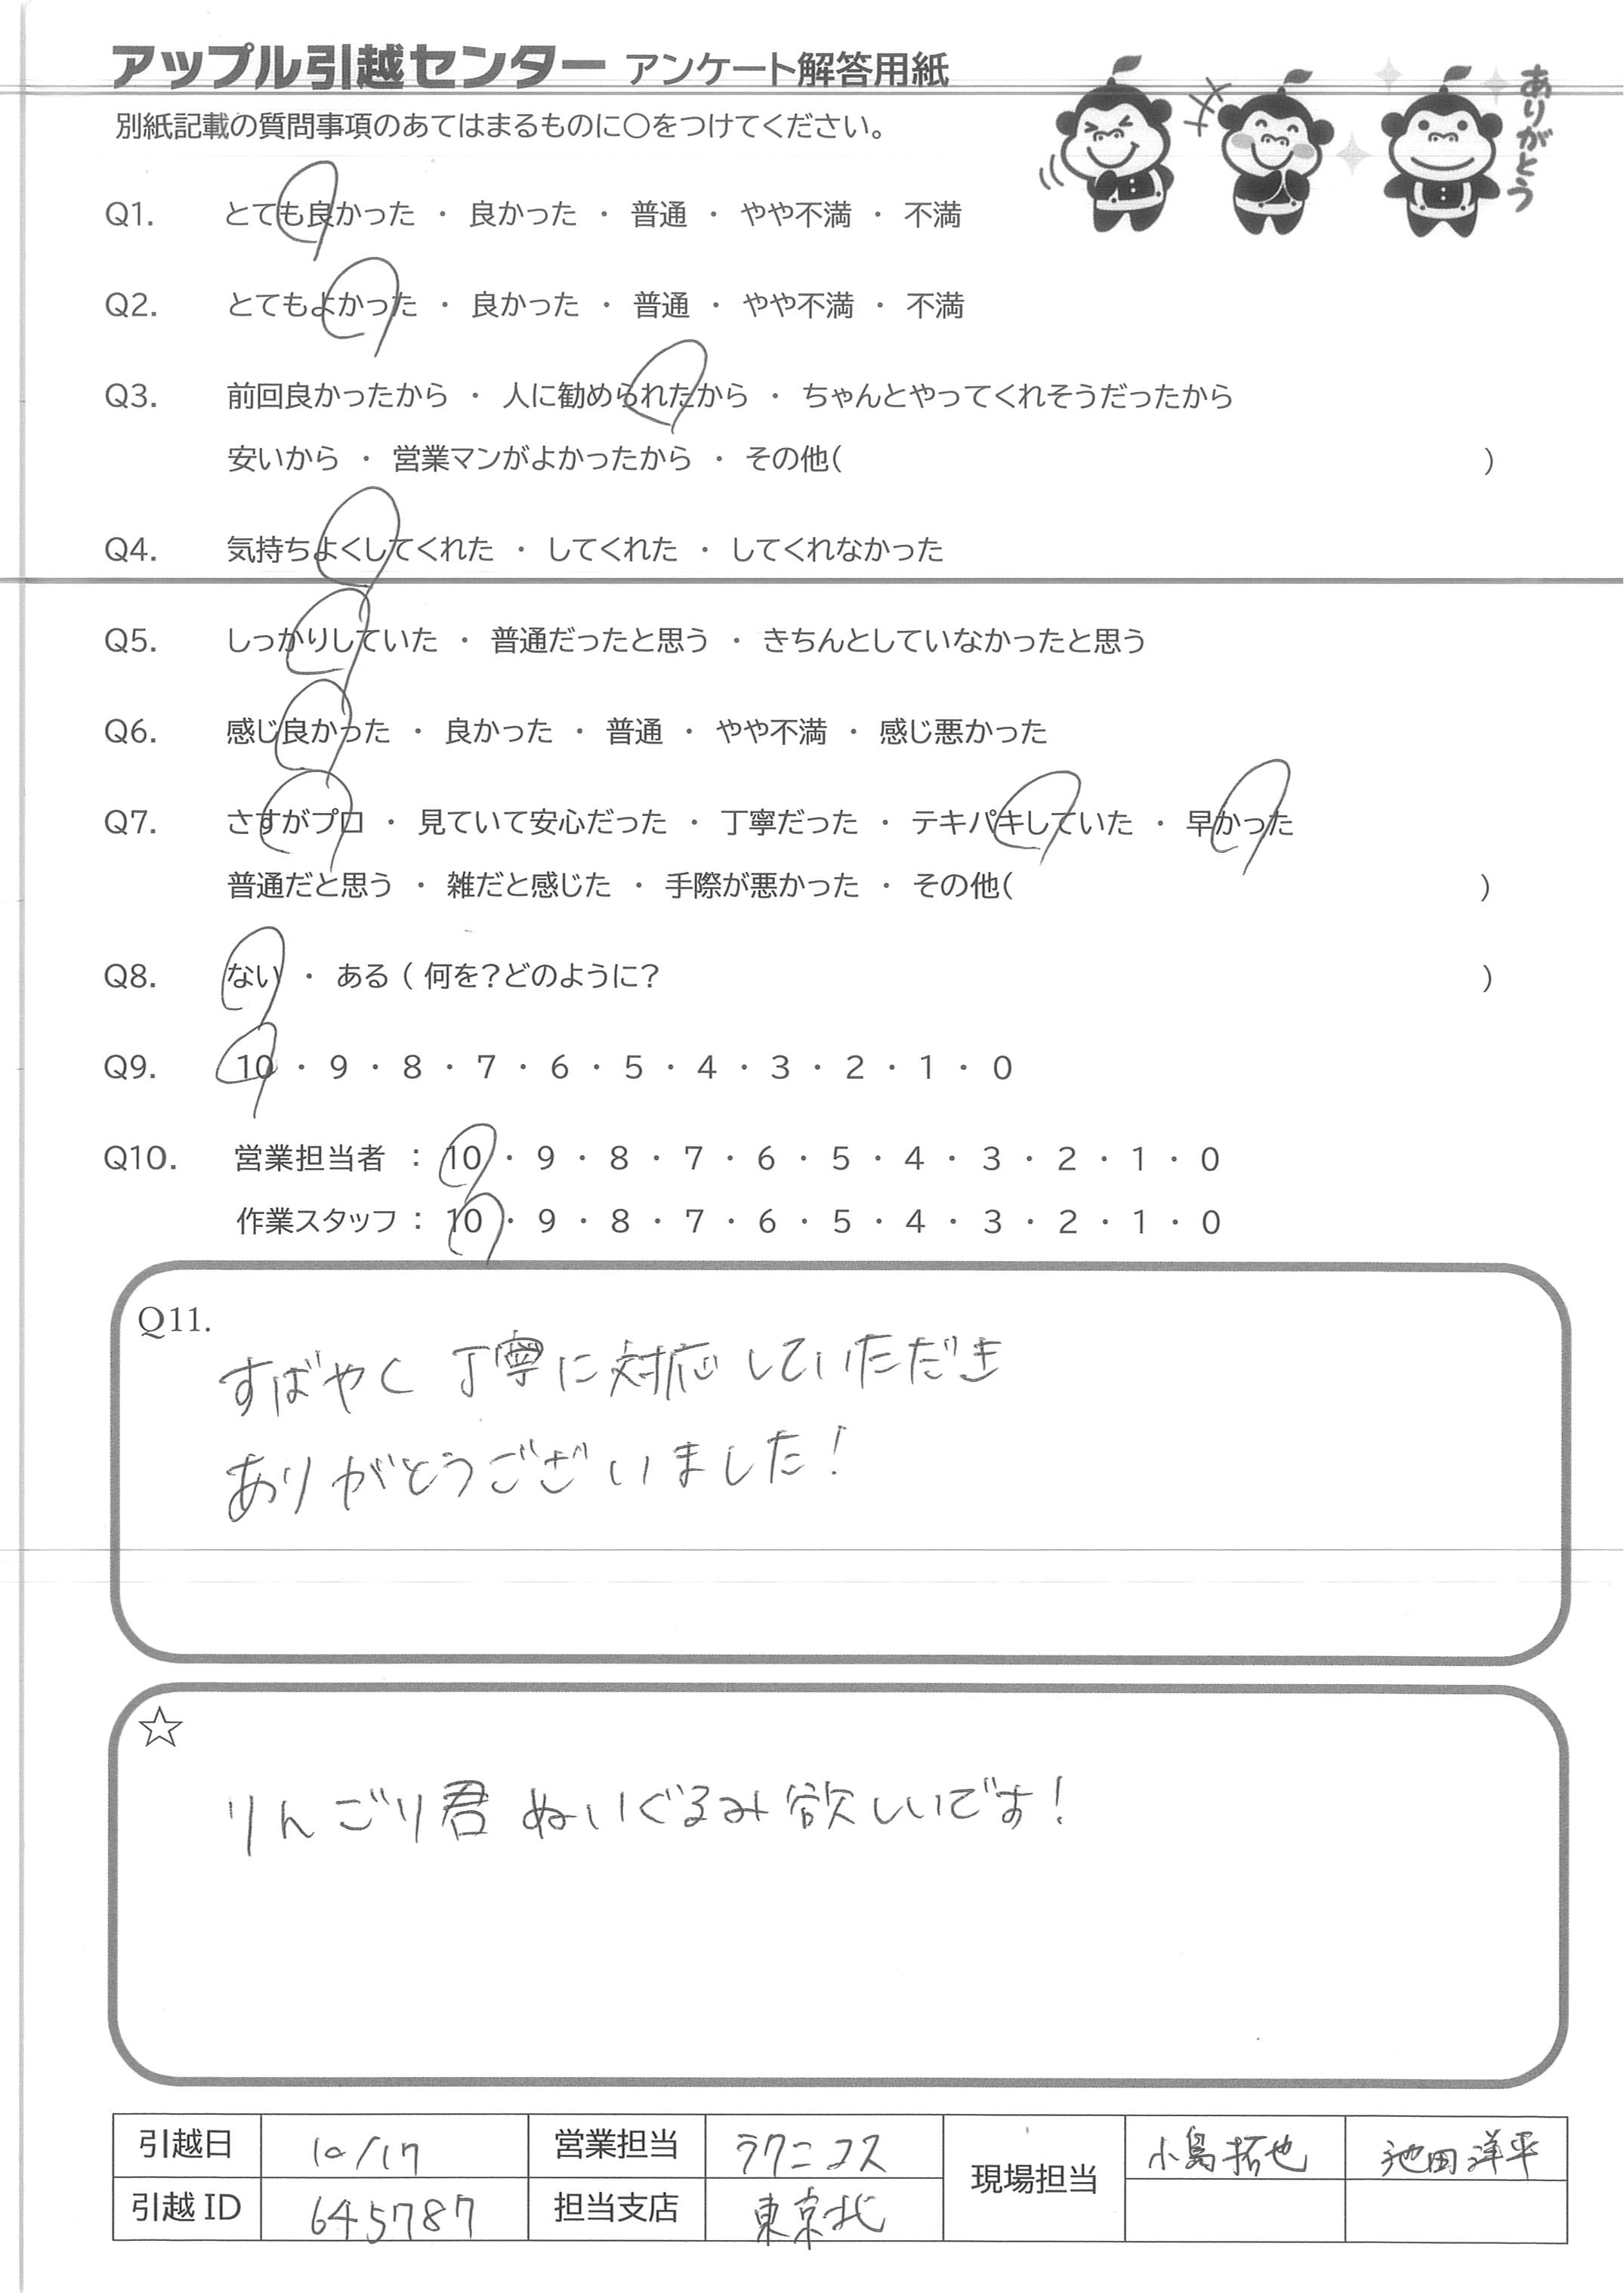 アップル引越センター アンケート解答用紙
別紙記載の質問事項のあてはまるものに〇をつけてください。
ありがとう
Q1. とても良かった ・ 良かった ・ 普通 ・ やや不満 ・ 不満
Q2. とてもよかった ・ 良かった ・ 普通 ・ やや不満 ・ 不満
Q3. 前回良かったから ・ 人に勧められたから ・ ちゃんとやってくれそうだったから
安いから ・ 営業マンがよかったから ・ その他( )
Q4. 気持ちよくしてくれた ・ してくれた ・ してくれなかった
Q5. しっかりしていた ・ 普通だったと思う ・ きちんとしていなかったと思う
Q6. 感じ良かった ・ 良かった ・ 普通 ・ やや不満 ・ 感じ悪かった
Q7. さすがプロ ・ 見ていて安心だった ・ 丁寧だった ・ テキパキしていた ・ 早かった
普通だと思う ・ 雑だと感じた ・ 手際が悪かった ・ その他( )
Q8. ない ・ ある ( 何を?どのように? )
Q9. 10 ・ 9 ・ 8 ・ 7 ・ 6 ・ 5 ・ 4 ・ 3 ・ 2 ・ 1 ・ 0
Q10. 営業担当者 : 10 ・ 9 ・ 8 ・ 7 ・ 6 ・ 5 ・ 4 ・ 3 ・ 2 ・ 1 ・ 0
作業スタッフ : 10 ・ 9 ・ 8 ・ 7 ・ 6 ・ 5 ・ 4 ・ 3 ・ 2 ・ 1 ・ 0
Q11.
すばやく 丁寧に対応していただき
ありがとうございました!
☆
りんごり君 ぬいぐるみ欲しいです!
引越日 10/17 営業担当 ラクニコス 現場担当 小島拓也 池田洋平
引越ID 645787 担当支店 東京北